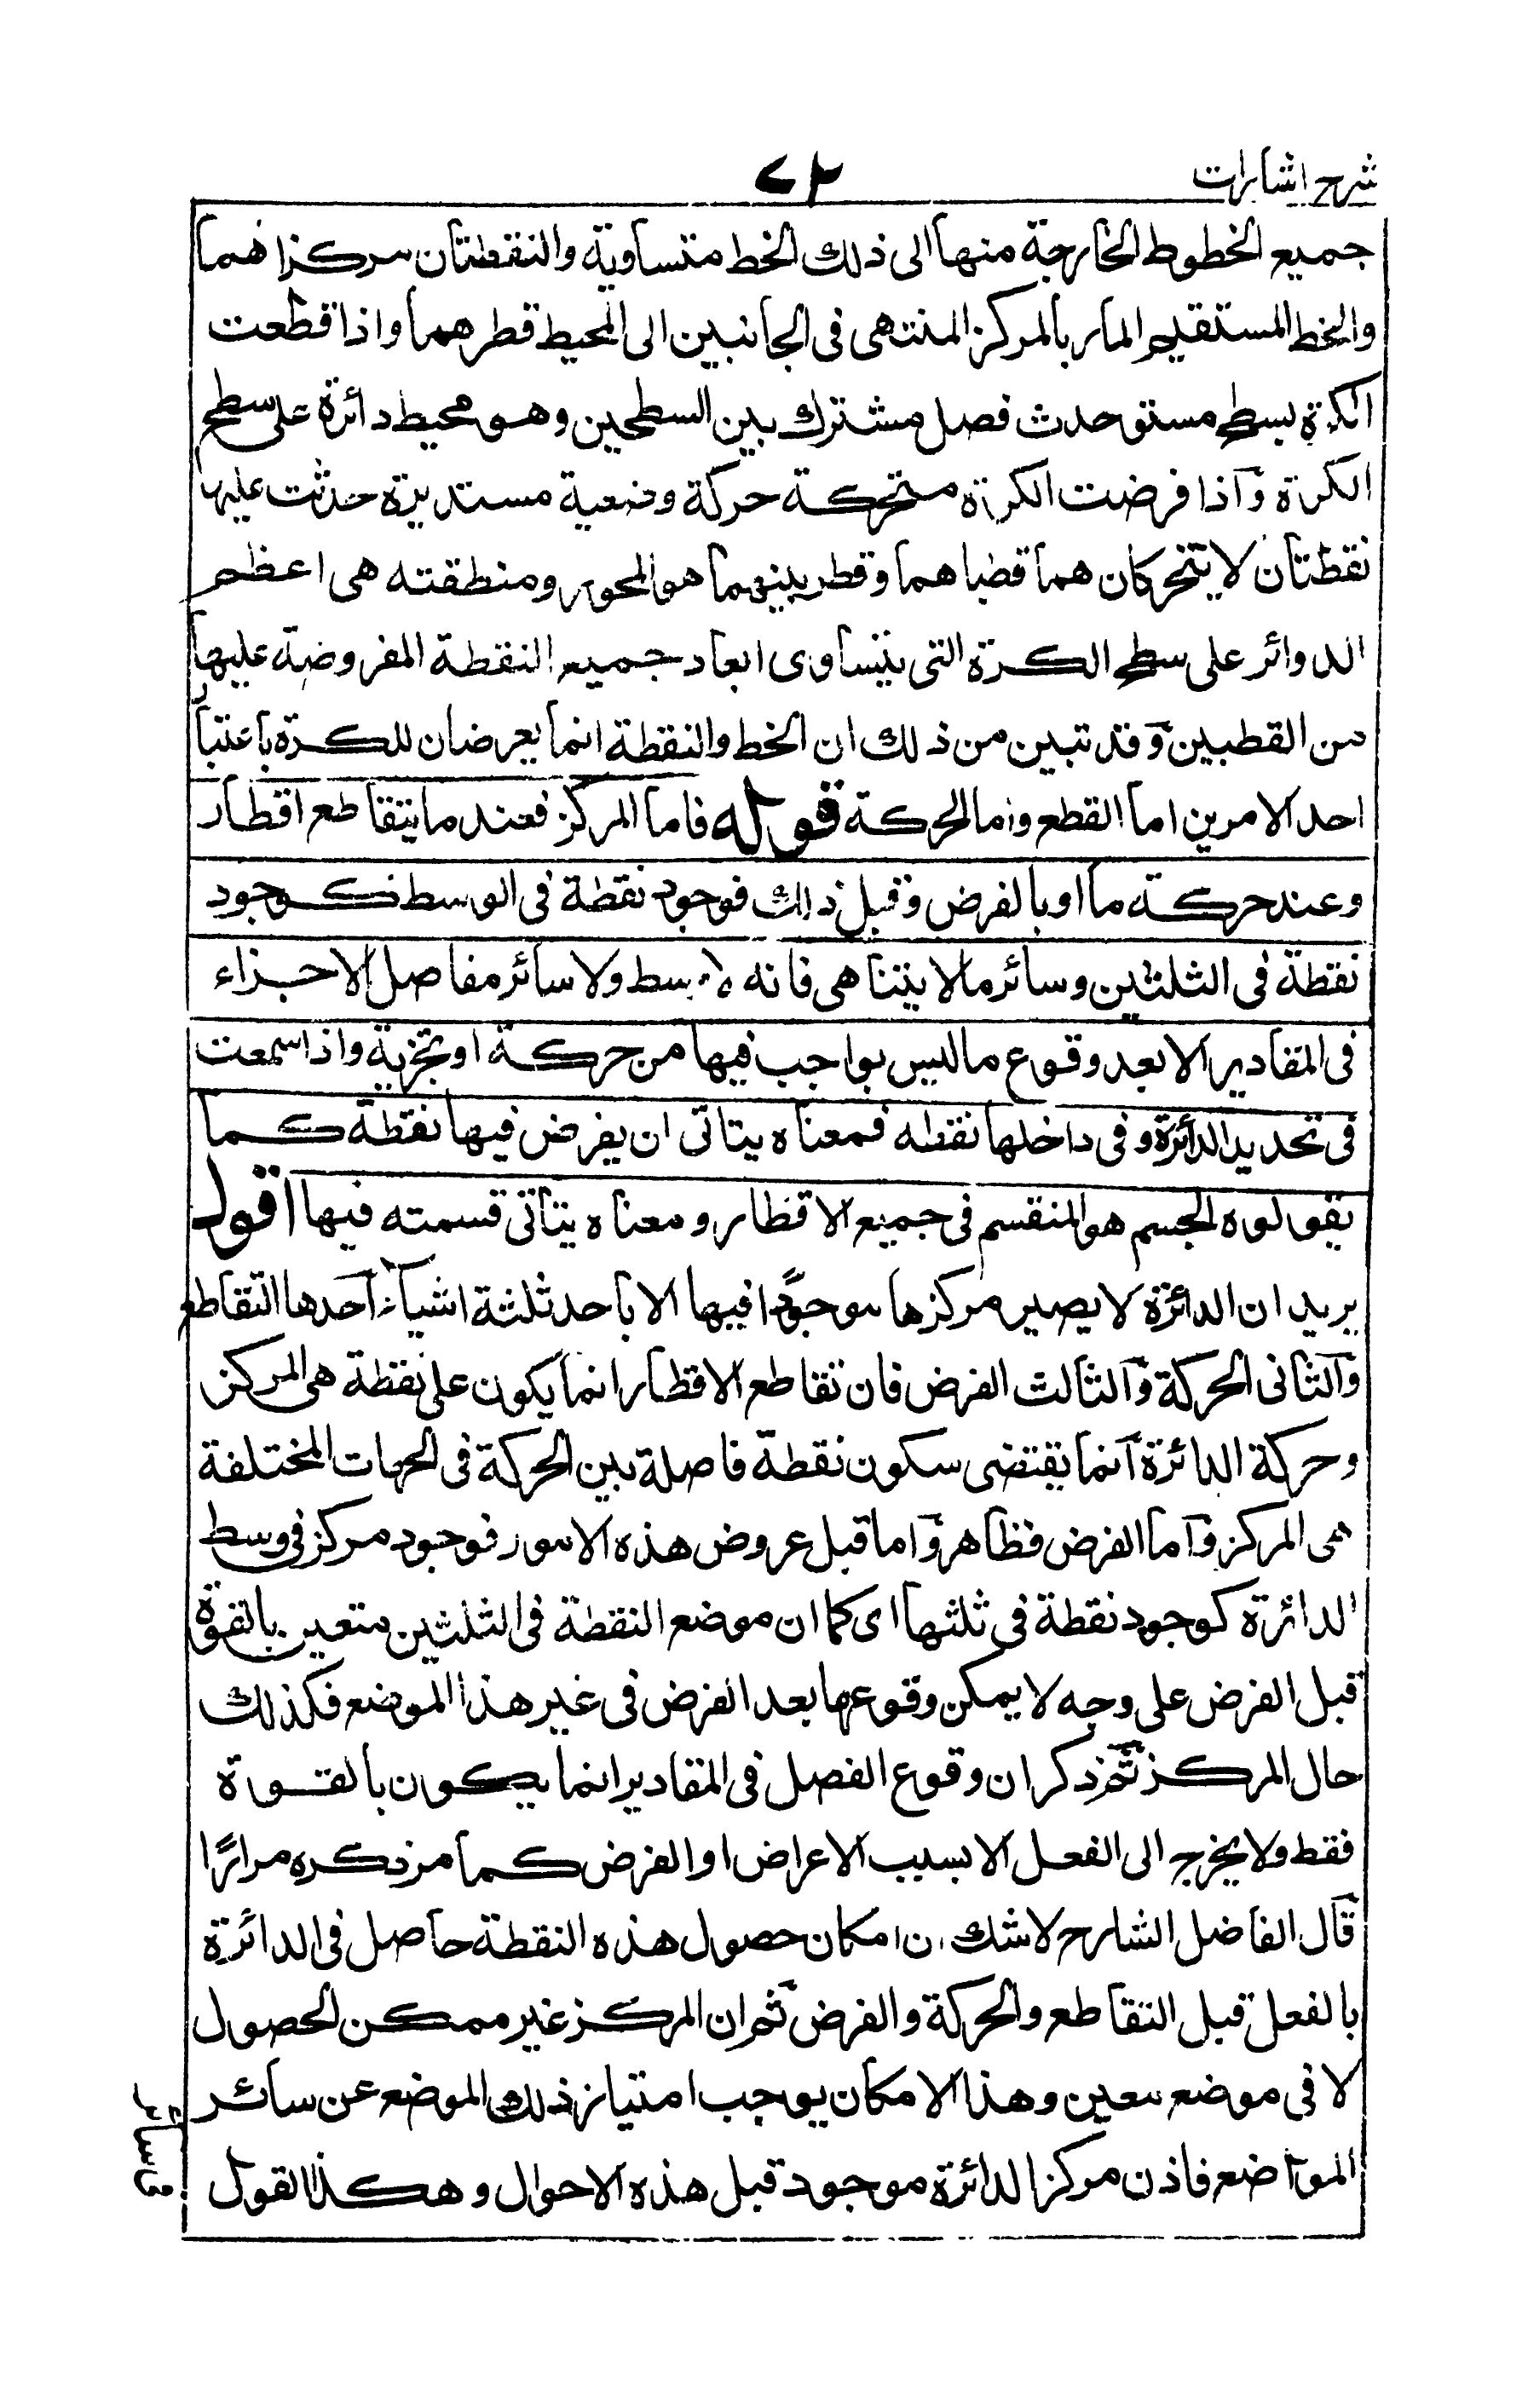 شرح اشارات
٧٢
جميع الخطوط الخارجة منها الى ذلك الخط متساوية والنقطتان مركزاهما
والخط المستقيم المار بالمركز المنتهى فى الجانبين الى المحيط قطرهما واذا قطعت
الكرة بسطح مستو حدث فصل مشترك بين السطحين وهو محيط دائرة على سطح
الكرة وآذا فرضت الكرة متحركة حركة وضعية مستديرة حدثت عليها
نقطتان لا يتحركان هما قطباهما وقطر بينهما هو المحور ومنطقته هى اعظم
الدوائر على سطح الكرة التى يتساوى ابعاد جميع النقطة المفروضة عليها
من القطبين وَقد تبين من ذلك ان الخط والنقطة انما يعرضان للكرة باعتبار
احد الامرين اما القطع واما الحركة قوله فاما المركز فعند ما يتقاطع اقطار
وعند حركة ما او بالفرض وقبل ذلك فوجود نقطة فى الوسط كوجود
نقطة فى الثلثين وسائر ما لا يتناهى فانه لا وسط ولا سائر مفاصل الاجزاء
فى المقادير الا بعد وقوع ما ليس بواجب فيها من حركة او تجزية واذا سمعت
فى تحديد الدائرة وفى داخلها نقطه فمعناه يتاتى ان يفرض فيها نقطة كما
يقولوه الجسم هو المنقسم فى جميع الاقطار ومعناه يتاتى قسمته فيها اقول
يريد ان الدائرة لا يصير مركزها موجودًا فيها الا باحد ثلثة اشياء آحدها التقاطع
وَآلثانى الحركة وَآلثالث الفرض فان تقاطع الاقطار انما يكون على نقطة هى المركز
وحركة الدائرة آنما يقتضى سكون نقطة فاصلة بين الحركة فى الجهات المختلفة
هى المركز وَآما الفرض فظاهر وَآما قبل عروض هذه الامور فوجود مركز فى وسط
الدائرة كوجود نقطة فى ثلثها اى كما ان موضع النقطة فى الثلثين متعين بالقوة
قبل الفرض على وجه لا يمكن وقوعها بعد الفرض فى غير هذا الموضع فكذلك
حال المركز ثَم ذكر ان وقوع الفصل فى المقادير انما يكون بالقوة
فقط ولا يخرج الى الفعل الا بسبب الاعراض او الفرض كما مر ذكره مرارًا
قَال الفاضل الشارح لا شك ان امكان حصول هذه النقطة حاصل فى الدائرة
بالفعل قبل التقاطع والحركة والفرض ثَم ان المركز غير ممكن الحصول
لا فى موضع معين وهذا الامكان يوجب امتياز ذلك الموضع عن سائر
المواضع فاذن مركز الدائرة موجود قبل هذه الاحوال وهكذا القول